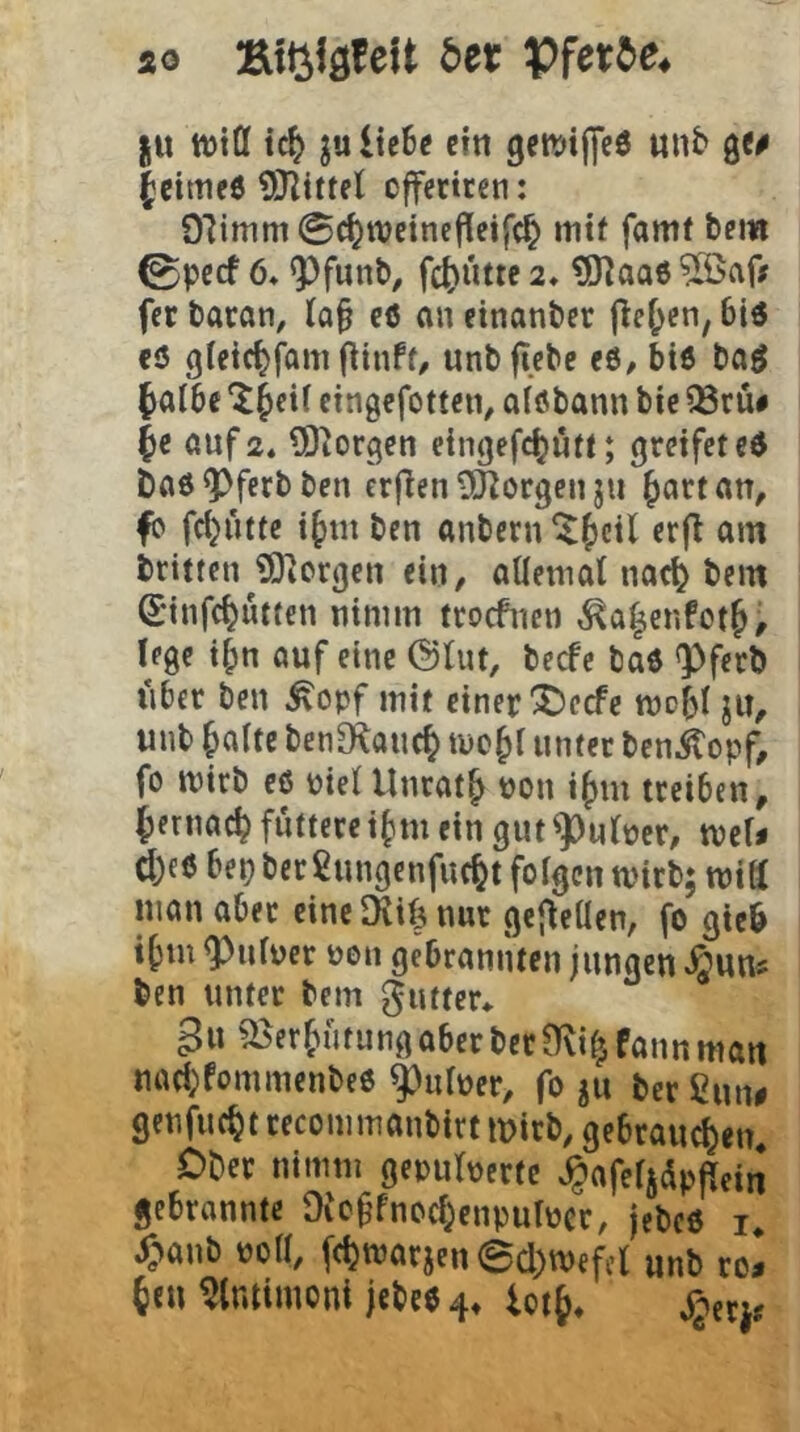 20 Ritzigkeit der Pferde.
zu will ich zu liebe ein gewisses und ge-
heimes Mittel offeriren:
Nimm Schweinefleisch mit samt dem
Speck 6. Pfund, schütte 2. Maas Was-
ser daran, laß es an einander stehen, bis
es gleichsam stinkt, und siede es, bis das
halbe Theil eingesotten, alsdann die Brü-
he auf 2. Morgen eingeschütt; greifet es
das Pferd den ersten Morgen zu hart an,
so schütte ihm den andern Theil erst am
dritten Morgen ein, allemal nach dem
Einschütten nimm trocknen Katzenkoth,
lege ihn auf eine Glut, decke das Pferd
über den Kopf mit einer Decke wohl zu,
und halte den Rauch wohl unter den Kopf,
so wird es viel Unrath von ihm treiben,
hernach füttere ihm ein gut Pulver, wel-
ches bey der Lungensucht folgen wird; will
man aber eine Ritz nur gestellen, so gieb
ihm Pulver von gebrannten jungen Hun-
den unter dem Futter.
Zu Verhütung aber der Ritz kann man
nachkommendes Pulver, so zu der Lun-
gensucht recommandirt wird, gebrauchen.
Oder nimm gepulverte Haselzäpflein
gebrannte Roßknochenpulver, jedes 1.
Hand voll, schwarzen Schwefel und ro-
hen Antimoni jedes 4. Loth. Herz-